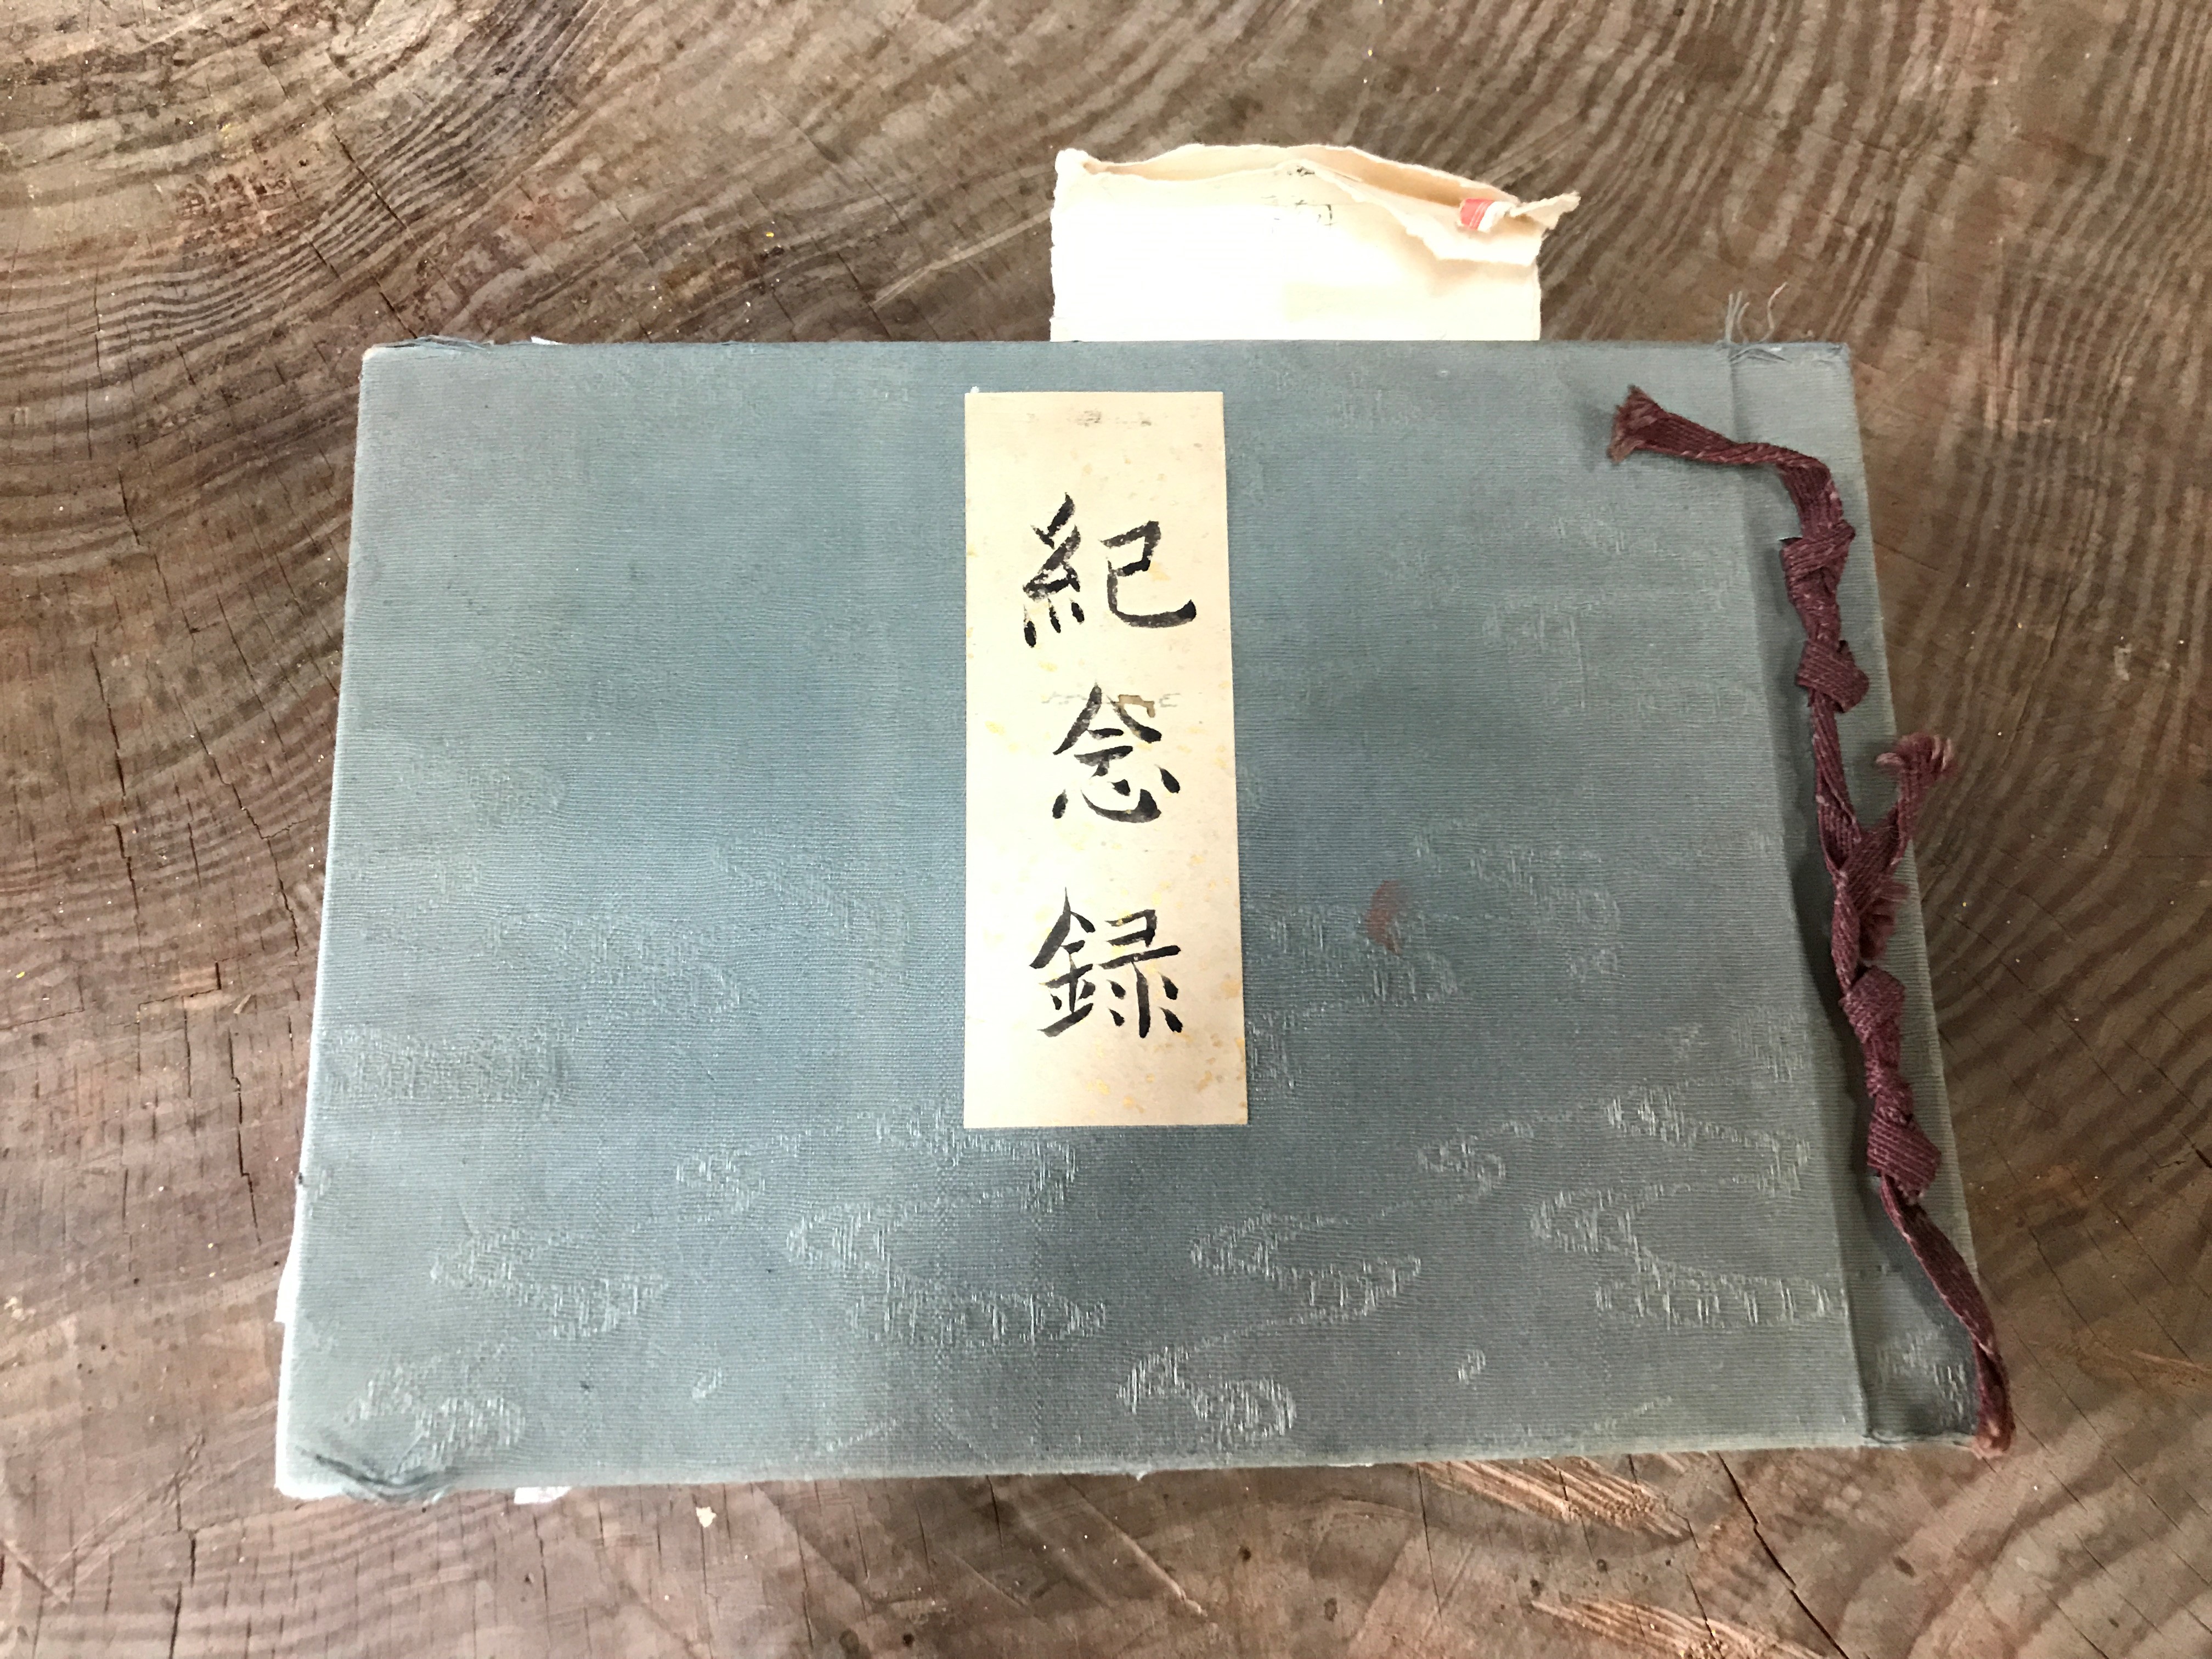 紀念録